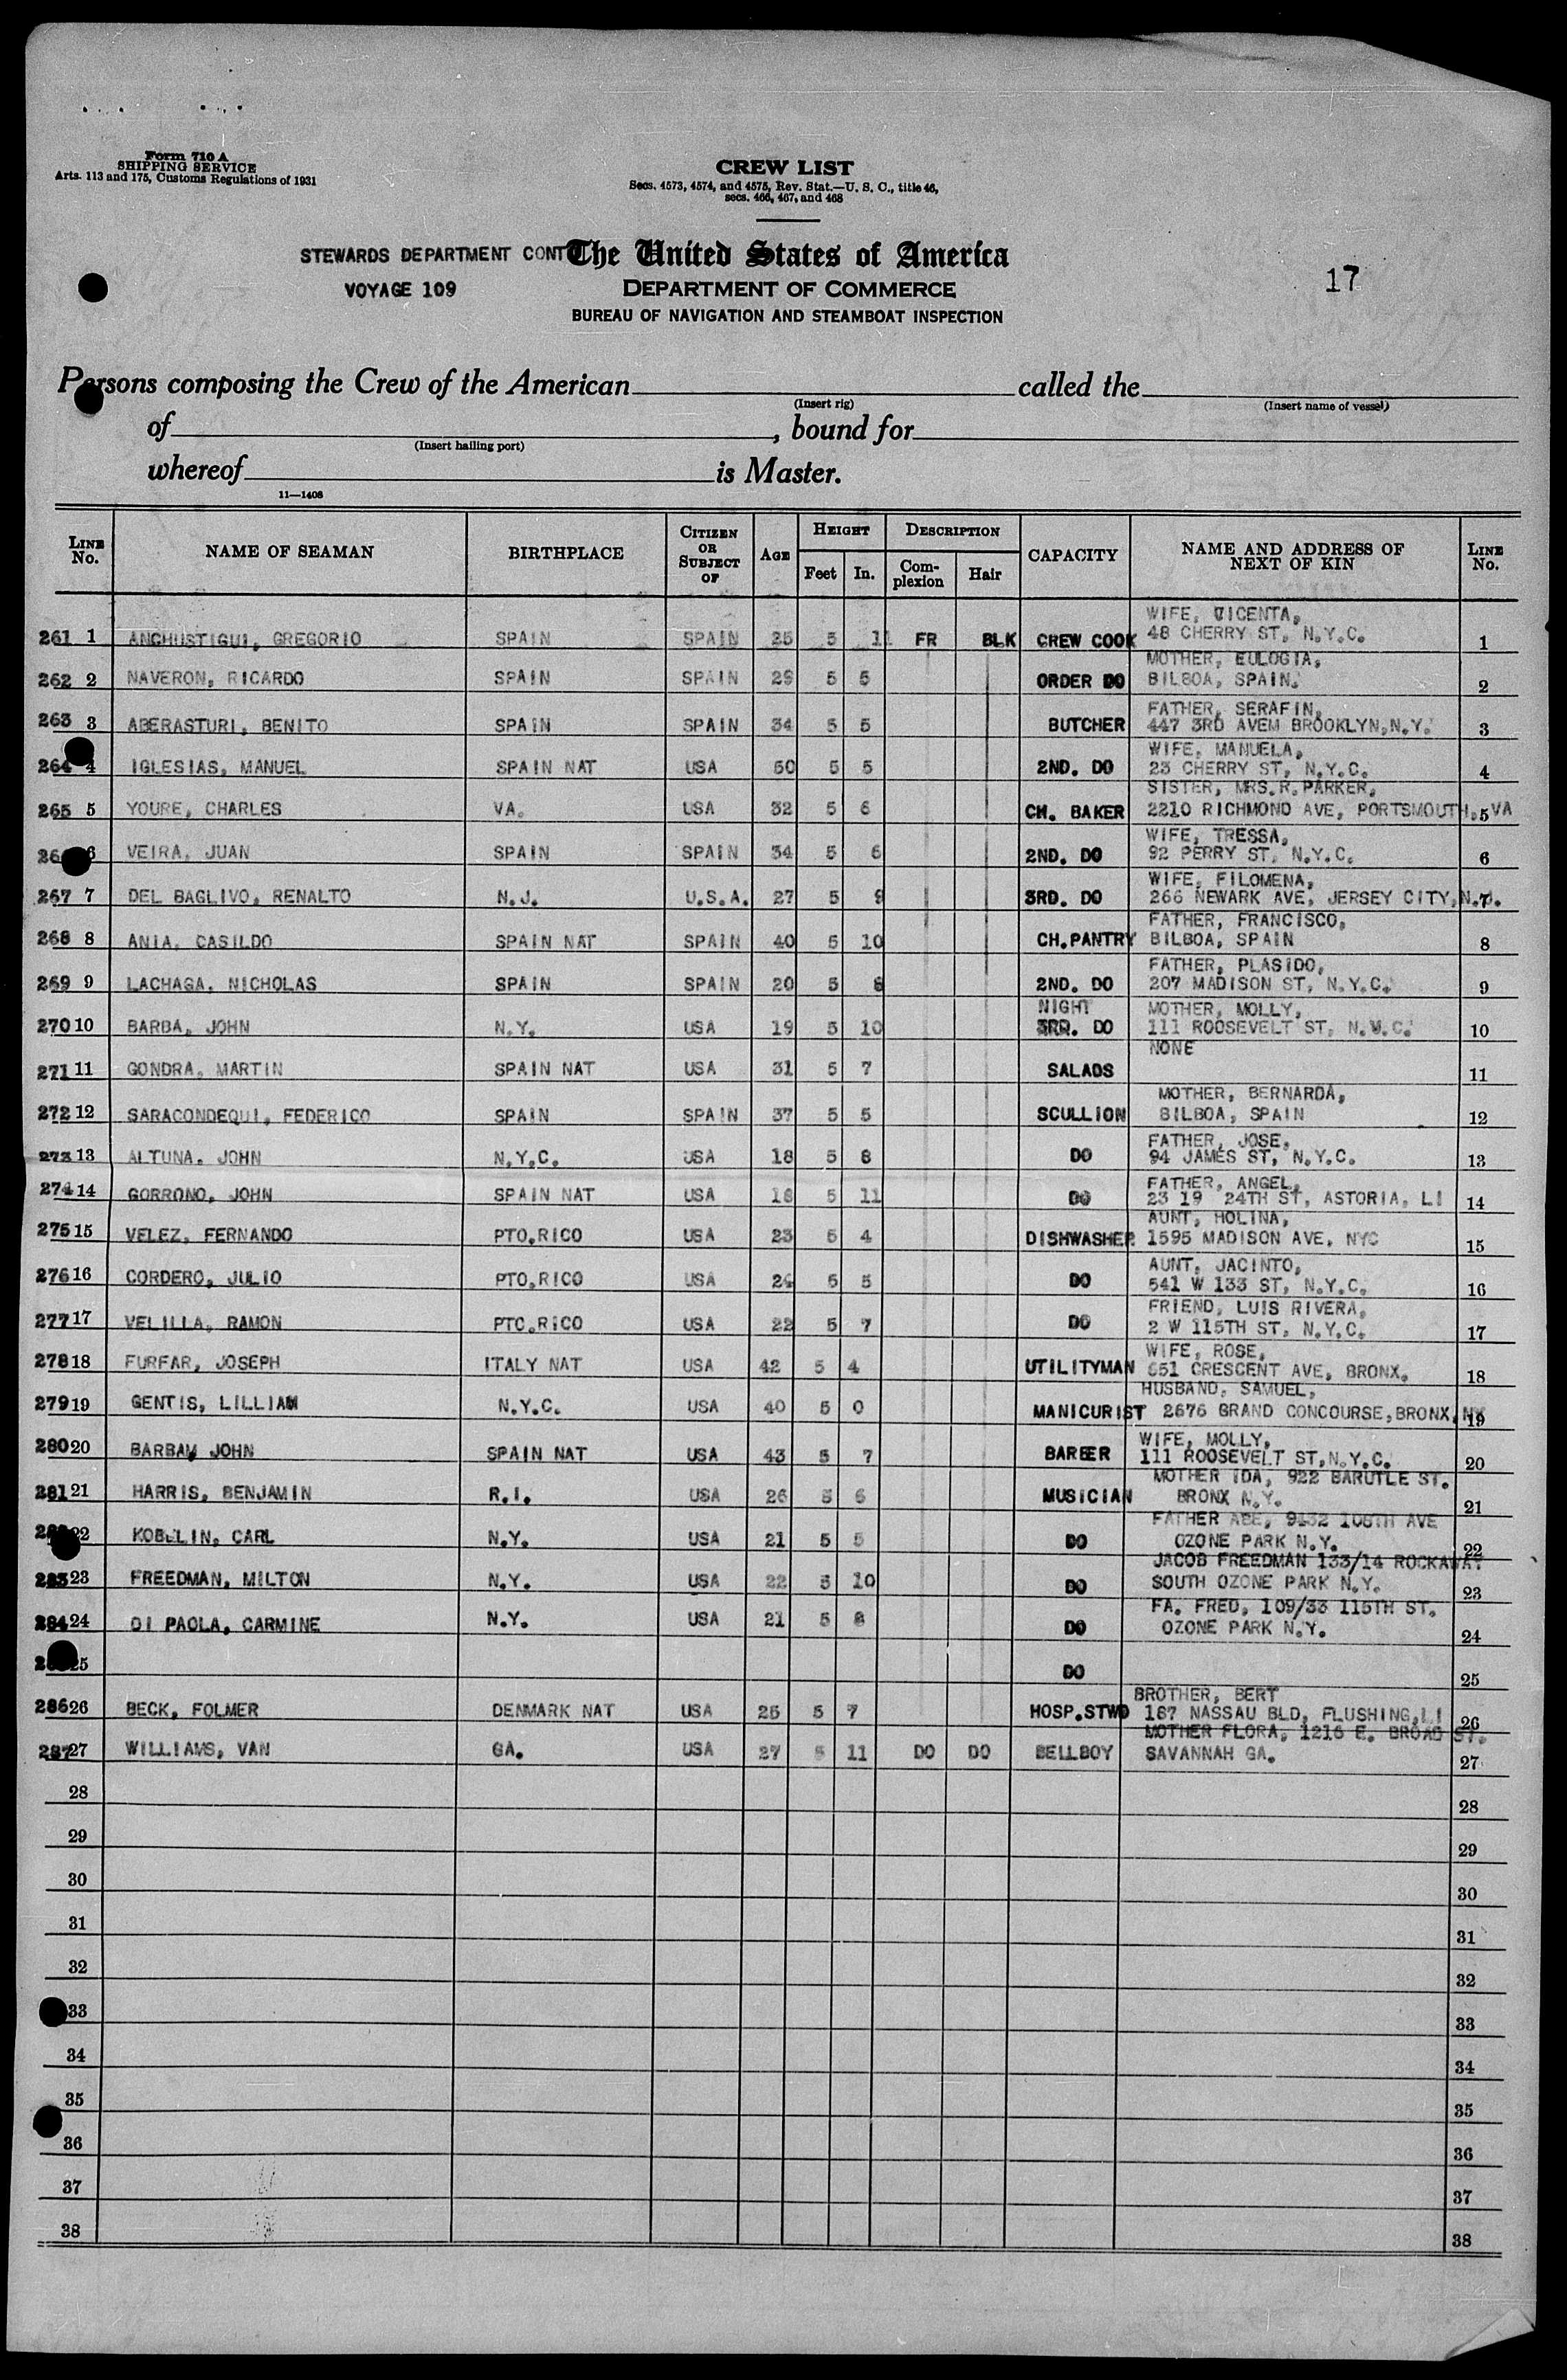 Form 710 A
SHIPPING SERVICE
Arts. 113 and 175, Customs Regulations of 1931
CREW LIST
Secs. 4573, 4574, and 4575, Rev. Stat.—U. S. C., title 46,
secs. 466, 467, and 468
STEWARDS DEPARTMENT CONT
The United States of America
VOYAGE 109
DEPARTMENT OF COMMERCE
17
BUREAU OF NAVIGATION AND STEAMBOAT INSPECTION
Persons composing the Crew of the American called the
(Insert rig) (Insert name of vessel)
of , bound for
(Insert hailing port)
whereof is Master.
11—1408
LINE No. NAME OF SEAMAN BIRTHPLACE CITIZEN OR SUBJECT OF AGE HEIGHT Feet In. DESCRIPTION Complexion Hair CAPACITY NAME AND ADDRESS OF NEXT OF KIN LINE No.
WIFE, VICENTA,
261 1 ANCHUSTIGUI, GREGORIO SPAIN SPAIN 25 5 11 FR BLK CREW COOK 48 CHERRY ST, N.Y.C. 1
MOTHER, EULOGIA,
262 2 NAVERON, RICARDO SPAIN SPAIN 29 5 5 ORDER DO BILBOA, SPAIN. 2
FATHER, SERAFIN,
263 3 ABERASTURI, BENITO SPAIN SPAIN 34 5 5 BUTCHER 447 3RD AVEM BROOKLYN,N.Y. 3
WIFE, MANUELA,
264 4 IGLESIAS, MANUEL SPAIN NAT USA 50 5 5 2ND. DO 23 CHERRY ST, N.Y.C. 4
SISTER, MRS.R.PARKER,
265 5 YOURE, CHARLES VA. USA 32 5 6 CH. BAKER 2210 RICHMOND AVE, PORTSMOUTH, VA 5
WIFE, TRESSA,
6 VEIRA, JUAN SPAIN SPAIN 34 5 6 2ND. DO 92 PERRY ST, N.Y.C. 6
WIFE, FILOMENA,
267 7 DEL BAGLIVO, RENALTO N.J. U.S.A. 27 5 9 3RD. DO 266 NEWARK AVE, JERSEY CITY, N.J. 7
FATHER, FRANCISCO,
268 8 ANIA, CASILDO SPAIN NAT SPAIN 40 5 10 CH.PANTRY BILBOA, SPAIN 8
FATHER, PLASIDO,
269 9 LACHAGA, NICHOLAS SPAIN SPAIN 20 5 8 2ND. DO 207 MADISON ST, N.Y.C. 9
NIGHT MOTHER, MOLLY,
270 10 BARBA, JOHN N.Y. USA 19 5 10 3RD. DO 111 ROOSEVELT ST, N.Y.C. 10
NONE
271 11 GONDRA, MARTIN SPAIN NAT USA 31 5 7 SALADS 11
MOTHER, BERNARDA,
272 12 SARACONDEQUI, FEDERICO SPAIN SPAIN 37 5 5 SCULLION BILBOA, SPAIN 12
FATHER, JOSE,
273 13 ALTUNA, JOHN N.Y.C. USA 18 5 8 DO 94 JAMES ST, N.Y.C. 13
FATHER, ANGEL,
274 14 GORRONO, JOHN SPAIN NAT USA 18 5 11 DO 23 19 24TH ST, ASTORIA, LI 14
AUNT, HOLINA,
275 15 VELEZ, FERNANDO PTO.RICO USA 23 5 4 DISHWASHER 1595 MADISON AVE, NYC 15
AUNT, JACINTO,
276 16 CORDERO, JULIO PTO.RICO USA 5 5 DO 541 W 133 ST, N.Y.C. 16
FRIEND, LUIS RIVERA,
277 17 VELILLA, RAMON PTO.RICO USA 22 5 7 DO 2 W 115TH ST, N.Y.C. 17
WIFE, ROSE,
278 18 FURFAR, JOSEPH ITALY NAT USA 42 5 4 UTILITYMAN 651 CRESCENT AVE, BRONX, 18
HUSBAND, SAMUEL,
279 19 GENTIS, LILLIAN N.Y.C. USA 40 5 0 MANICURIST 2676 GRAND CONCOURSE,BRONX,NY 19
WIFE, MOLLY,
280 20 BARBA, JOHN SPAIN NAT USA 43 5 7 BARBER 111 ROOSEVELT ST,N.Y.C. 20
MOTHER IDA, 922 BARUTLE ST.
281 21 HARRIS, BENJAMIN R.I. USA 26 5 6 MUSICIAN BRONX N.Y. 21
FATHER ABE, 9432 108TH AVE
22 KOBELIN, CARL N.Y. USA 21 5 5 DO OZONE PARK N.Y. 22
JACOB FREEDMAN 133/14 ROCKAWAY
283 23 FREEDMAN, MILTON N.Y. USA 22 5 10 DO SOUTH OZONE PARK N.Y. 23
FA. FRED, 109/33 115TH ST.
284 24 DI PAOLA, CARMINE N.Y. USA 21 5 8 DO OZONE PARK N.Y. 24
25 DO 25
BROTHER, BERT
286 26 BECK, FOLMER DENMARK NAT USA 25 5 7 HOSP.STWD 167 NASSAU BLD, FLUSHING,LI 26
MOTHER FLORA, 1216 E. BROAD ST.
287 27 WILLIAMS, VAN GA. USA 27 5 11 DO DO BELLBOY SAVANNAH GA. 27
28 28
29 29
30 30
31 31
32 32
33 33
34 34
35 35
36 36
37 37
38 38